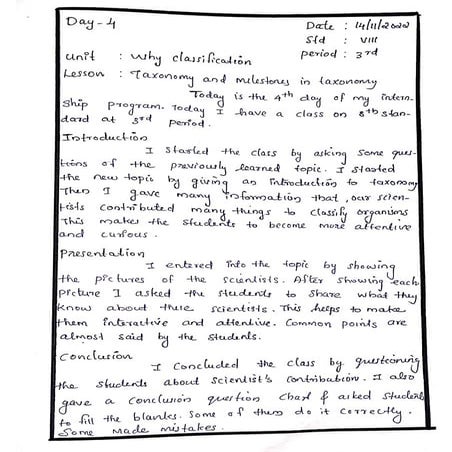 Day-4 Date : 14/11/2022
Std : VIII
Unit : Why classification period : 3rd
Lesson : Taxonomy and milestones in taxonomy
Today is the 4th day of my intern-
ship program. Today I have a class on 8th stan-
dard at 3rd period.
Introduction
I started the class by asking some que-
tions of the previously learned topic. I started
the new topic by giving an introduction to taxonomy
Then I gave many information that , our scien-
tists contributed many things to classify organisms
This makes the students to become more attentive
and curious.
Presentation
I entered into the topic by showing
the pictures of the scientists. After showing each
picture I asked the students to share what they
know about these scientists. This helps to make
them interactive and attentive. Common points are
almost said by the students.
Conclusion
I Concluded the class by questioning
the students about scientist's contribution. I also
gave a conclusion question chart & asked students
to fill the blanks. Some of them do it correctly.
Some made mistakes.